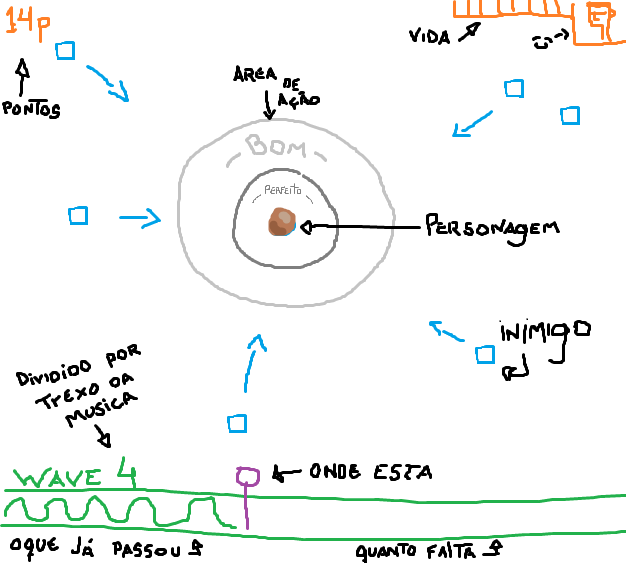 14p
PONTOS
VIDA
AREA
DE
AÇÃO
BOM
PERFEITO
PERSONAGEM
INIMIGO
DIVIDIDO POR
TREXO DA
MUSICA
WAVE 4
ONDE ESTA
OQUE JÁ PASSOU
QUANTO FALTA